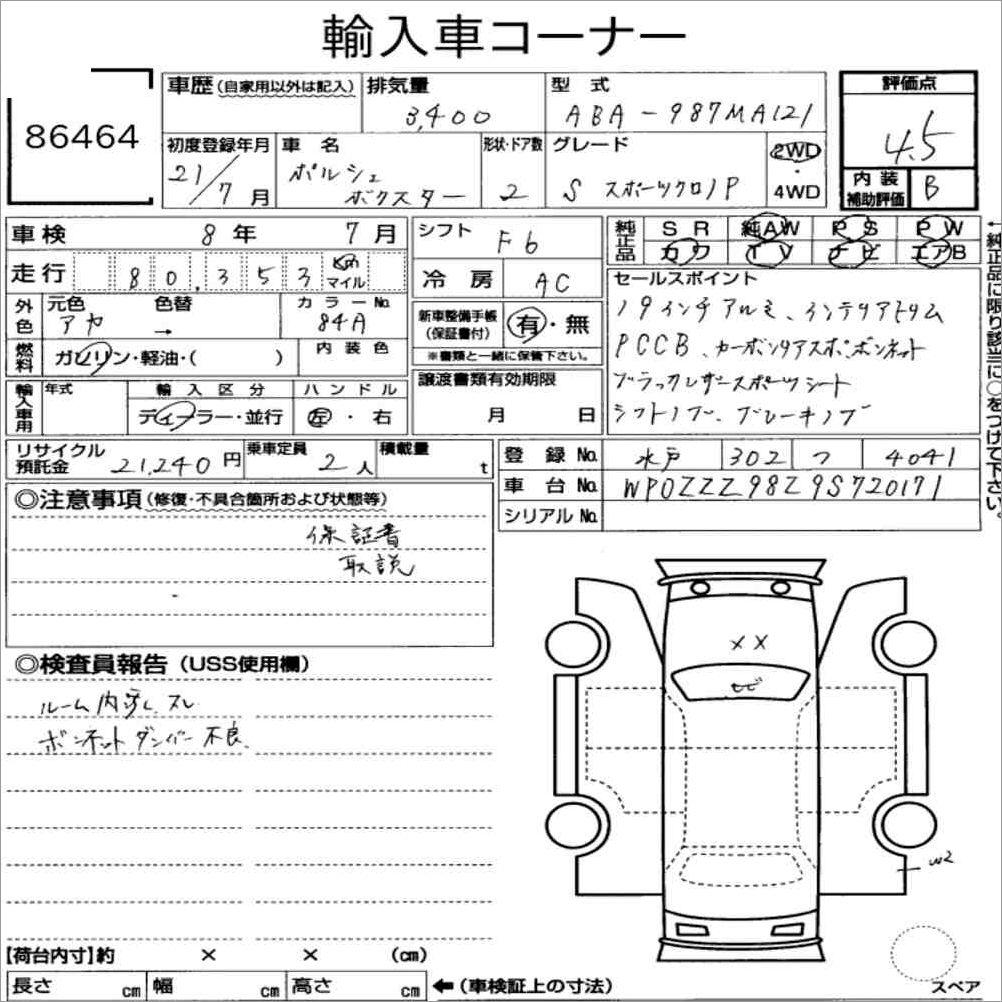 輸入車コーナー
86464
車歴(自家用以外は記入) 排気量 3,400 型式 ABA-987MA121 評価点 4.5
初度登録年月 21/7月 車名 ポルシェ ボクスター 形状・ドア数 2 グレード S スポーツクロノP 2WD・4WD 内装補助評価 B
車検 8年 7月 シフト F6 純正品 SR 純AW PS PW
カワ TV ナビ エアB
走行 80,353 Km マイル 冷房 AC セールスポイント
19インチアルミ、インテリアトリム
外色 元色 アカ 色替 → カラーNo. 84A 新車整備手帳(保証書付) 有・無
PCCB、カーボン
燃料 ガソリン・軽油・( ) 内装色 ※書類と一緒に保管下さい。
ブラックレザースポーツシート
輸入車用 年式 輸入区分 ディーラー・並行 ハンドル 左・右 譲渡書類有効期限 月 日
シフトノブ、ブレーキノブ
←純正品に限り該当に○をつけて下さい。
リサイクル預託金 21,240円 乗車定員 2人 積載量 t 登録No. 水戸 302 つ 4041
車台No. WP0ZZZ98Z9S720171
シリアルNo.
◎注意事項(修復・不具合箇所および状態等)
保証書
取説
◎検査員報告(USS使用欄)
ルーム内 スレ
ボンネットダンパー不良
XX
トビ
W2
【荷台内寸】約 × × (cm)
長さ cm 幅 cm 高さ cm ←(車検証上の寸法)
スペア